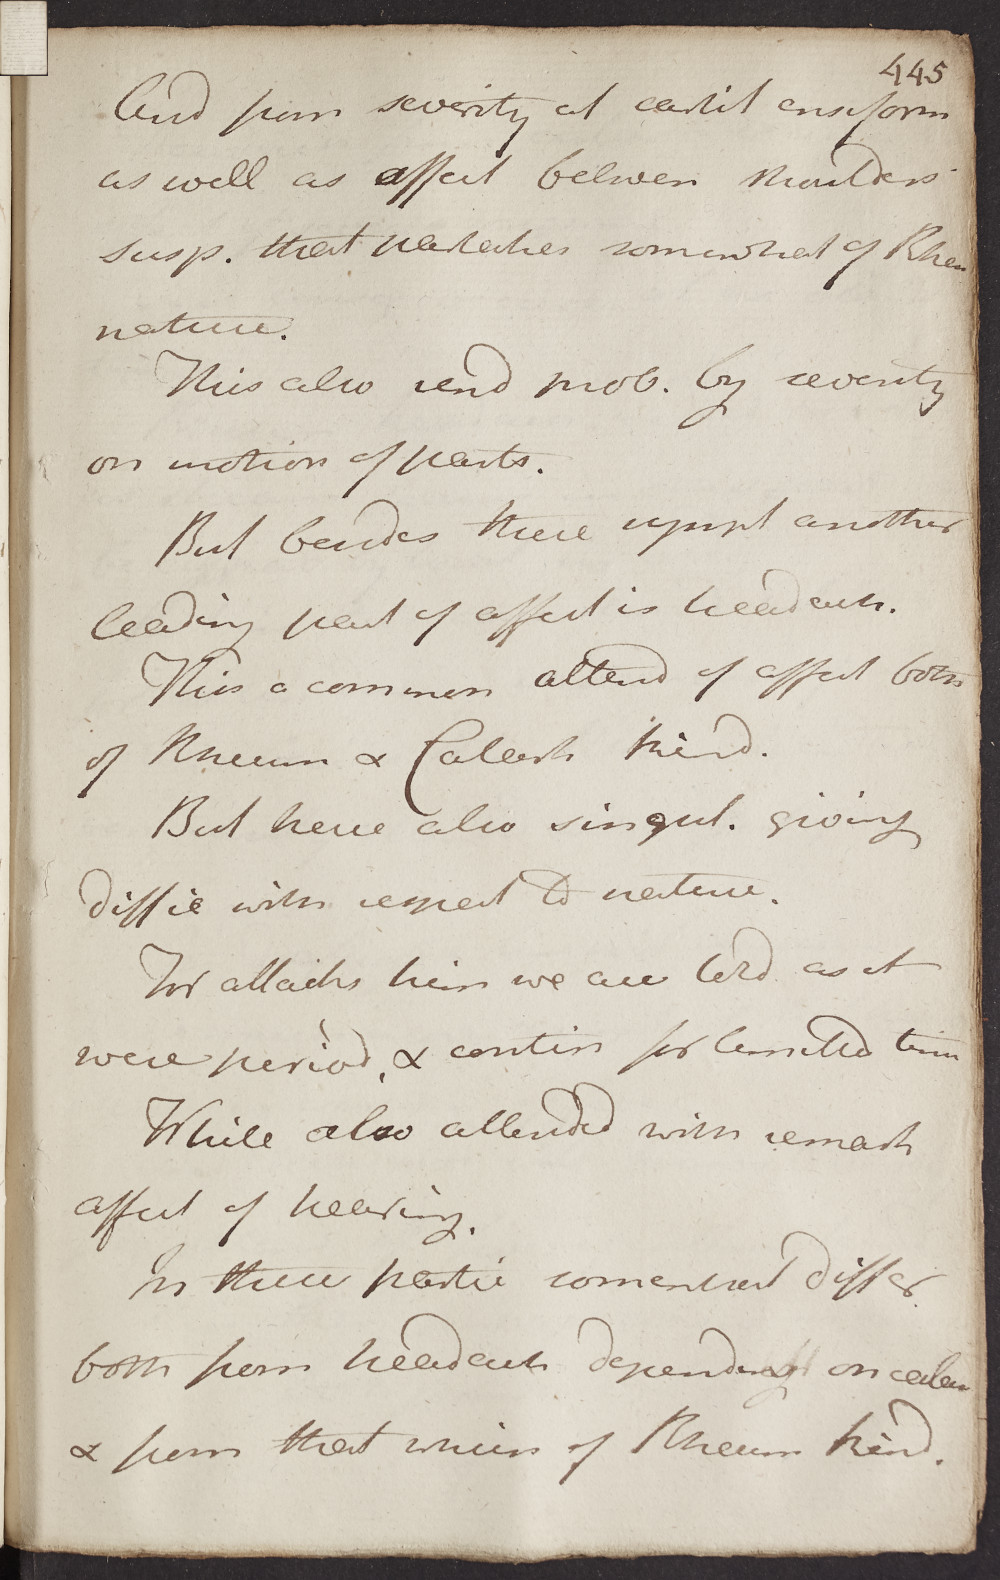 445
And from severity at cartil ensiform
as well as affect between shoulders
susp. that partakes somewhat of Rheu
nature.
This also rend prob. by severity
on motion of parts.
But besides these sympt another
leading part of affect is headach.
This a common attend of affect both
of Rheum & Catarrh kind.
But here also singul. giving
diffic with respect to nature.
For attacks him we are told as it
were period, & contin for limitted time
While also attended with remark
affect of hearing.
In these partic somewhat differ
both from headach depending on catar
& from that which of Rheum kind.